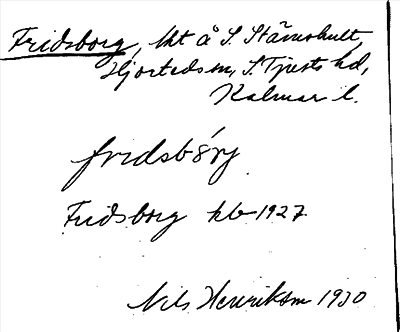 Fridsborg, lht å S. Stämshult,
Hjorteds sn, S. Tjusts hd,
Kalmar l.
fridsbǒrj
Fridsborg kb 1927
Nils Henrikson 1930